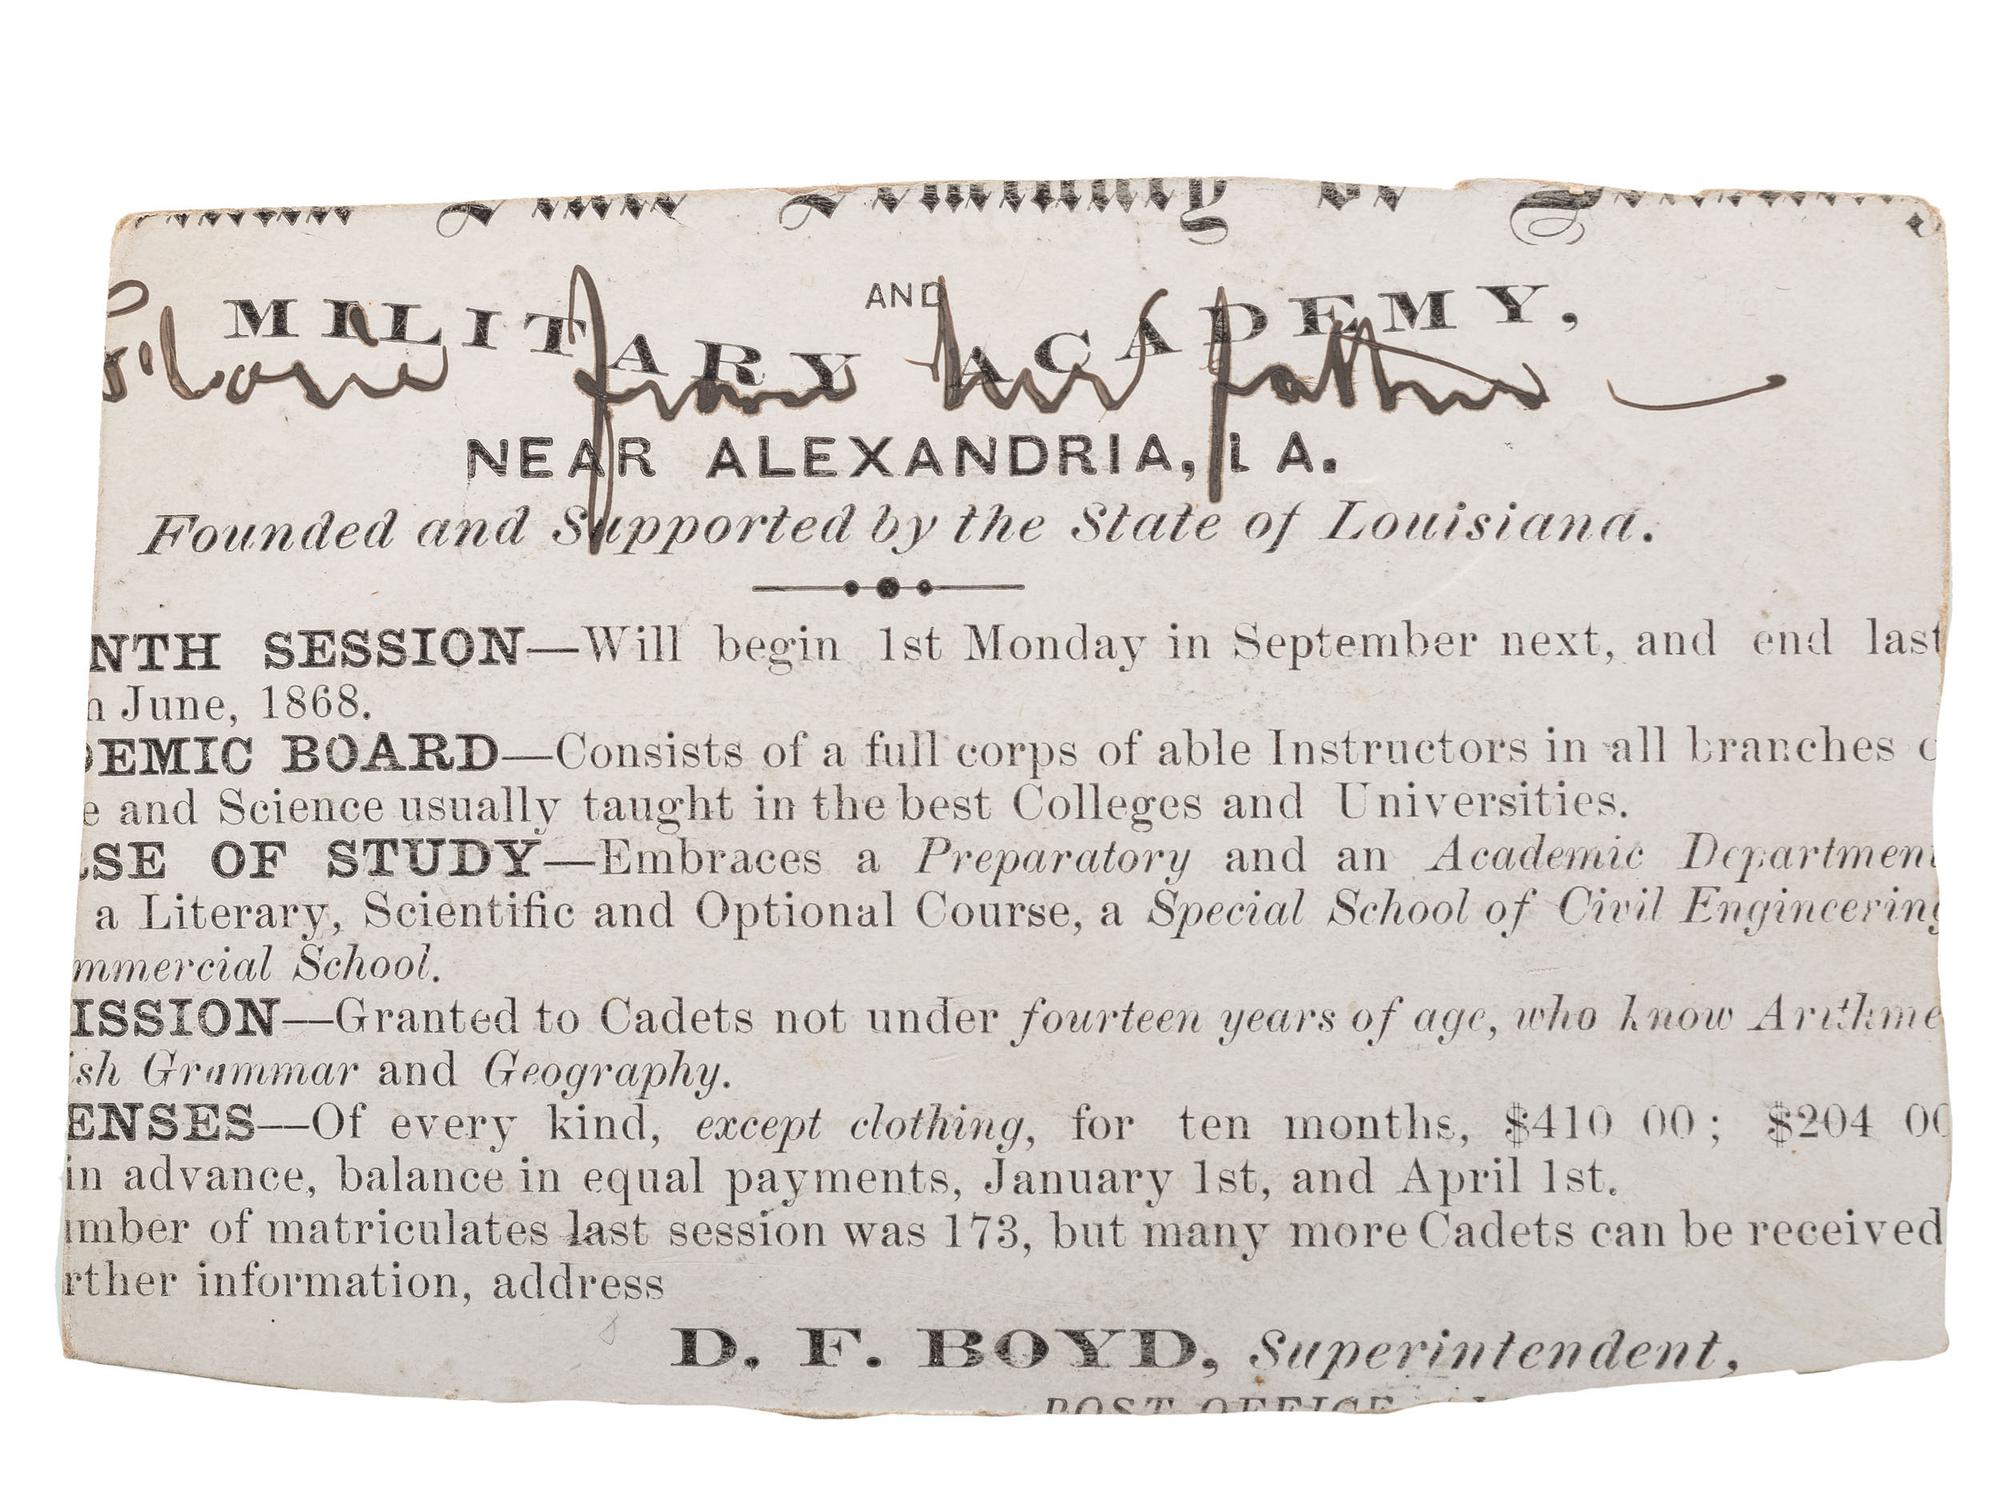 AND
MILITARY ACADEMY,
from her father
NEAR ALEXANDRIA, LA.
Founded and Supported by the State of Louisiana.
NTH SESSION—Will begin 1st Monday in September next, and end last
n June, 1868.
DEMIC BOARD—Consists of a full corps of able Instructors in all branches o
e and Science usually taught in the best Colleges and Universities.
RSE OF STUDY—Embraces a Preparatory and an Academic Department
a Literary, Scientific and Optional Course, a Special School of Civil Engineering
mmercial School.
ISSION—Granted to Cadets not under fourteen years of age, who know Arithme
ish Grammar and Geography.
ENSES—Of every kind, except clothing, for ten months, $410 00; $204 00
in advance, balance in equal payments, January 1st, and April 1st.
umber of matriculates last session was 173, but many more Cadets can be received
rther information, address
D. F. BOYD, Superintendent,
POST OFFICE